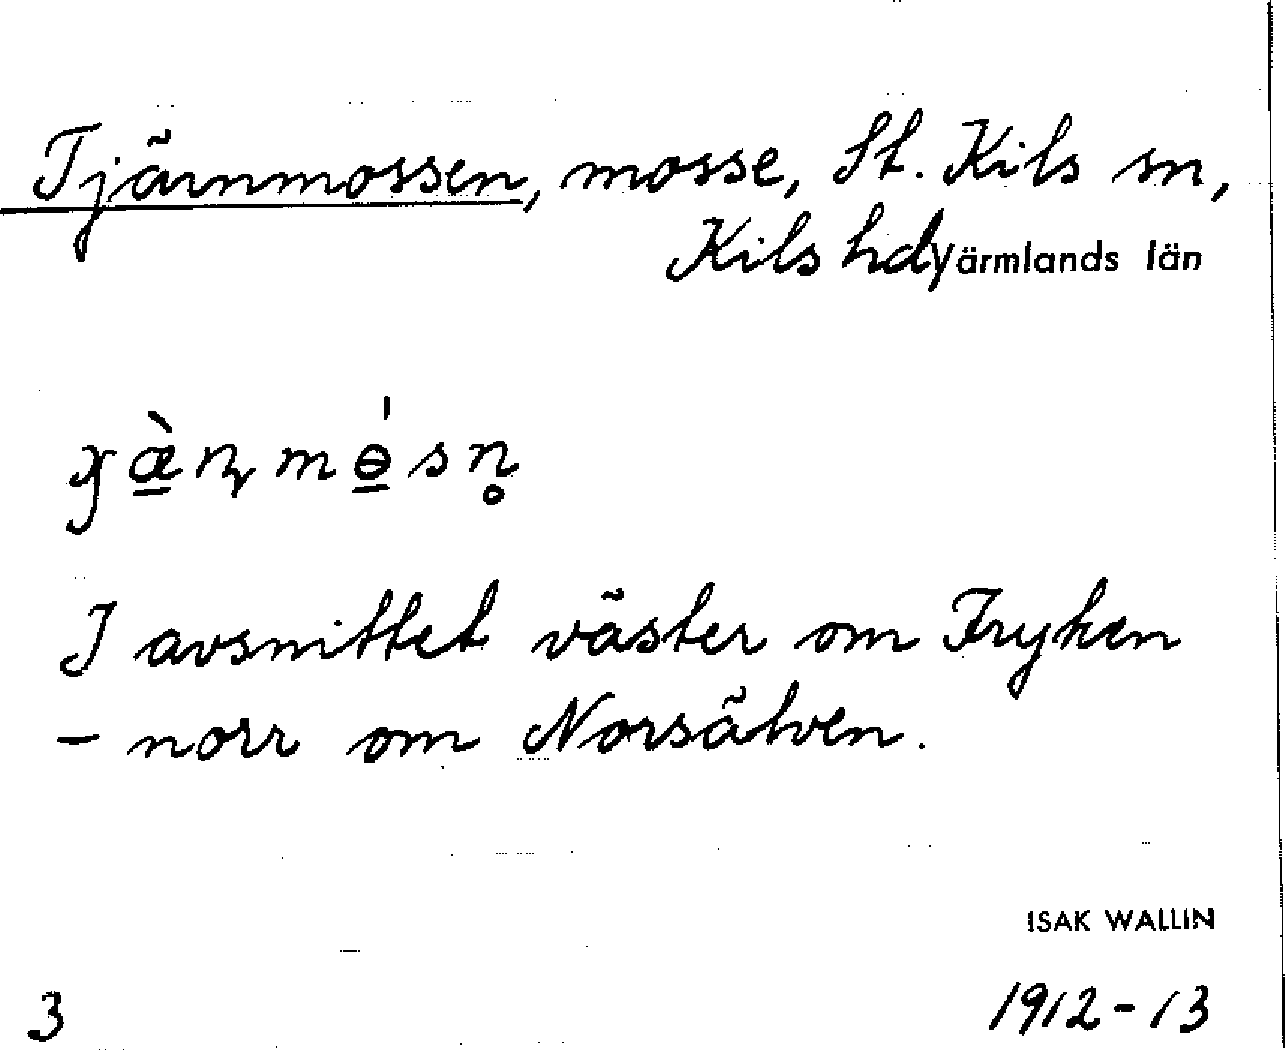 Tjärnmossen, mosse, St. Kils sn,
Kils hd, Värmlands län
I avsnittet väster om Fryken
– norr om Norsälven.
ISAK WALLIN
3 1912-13